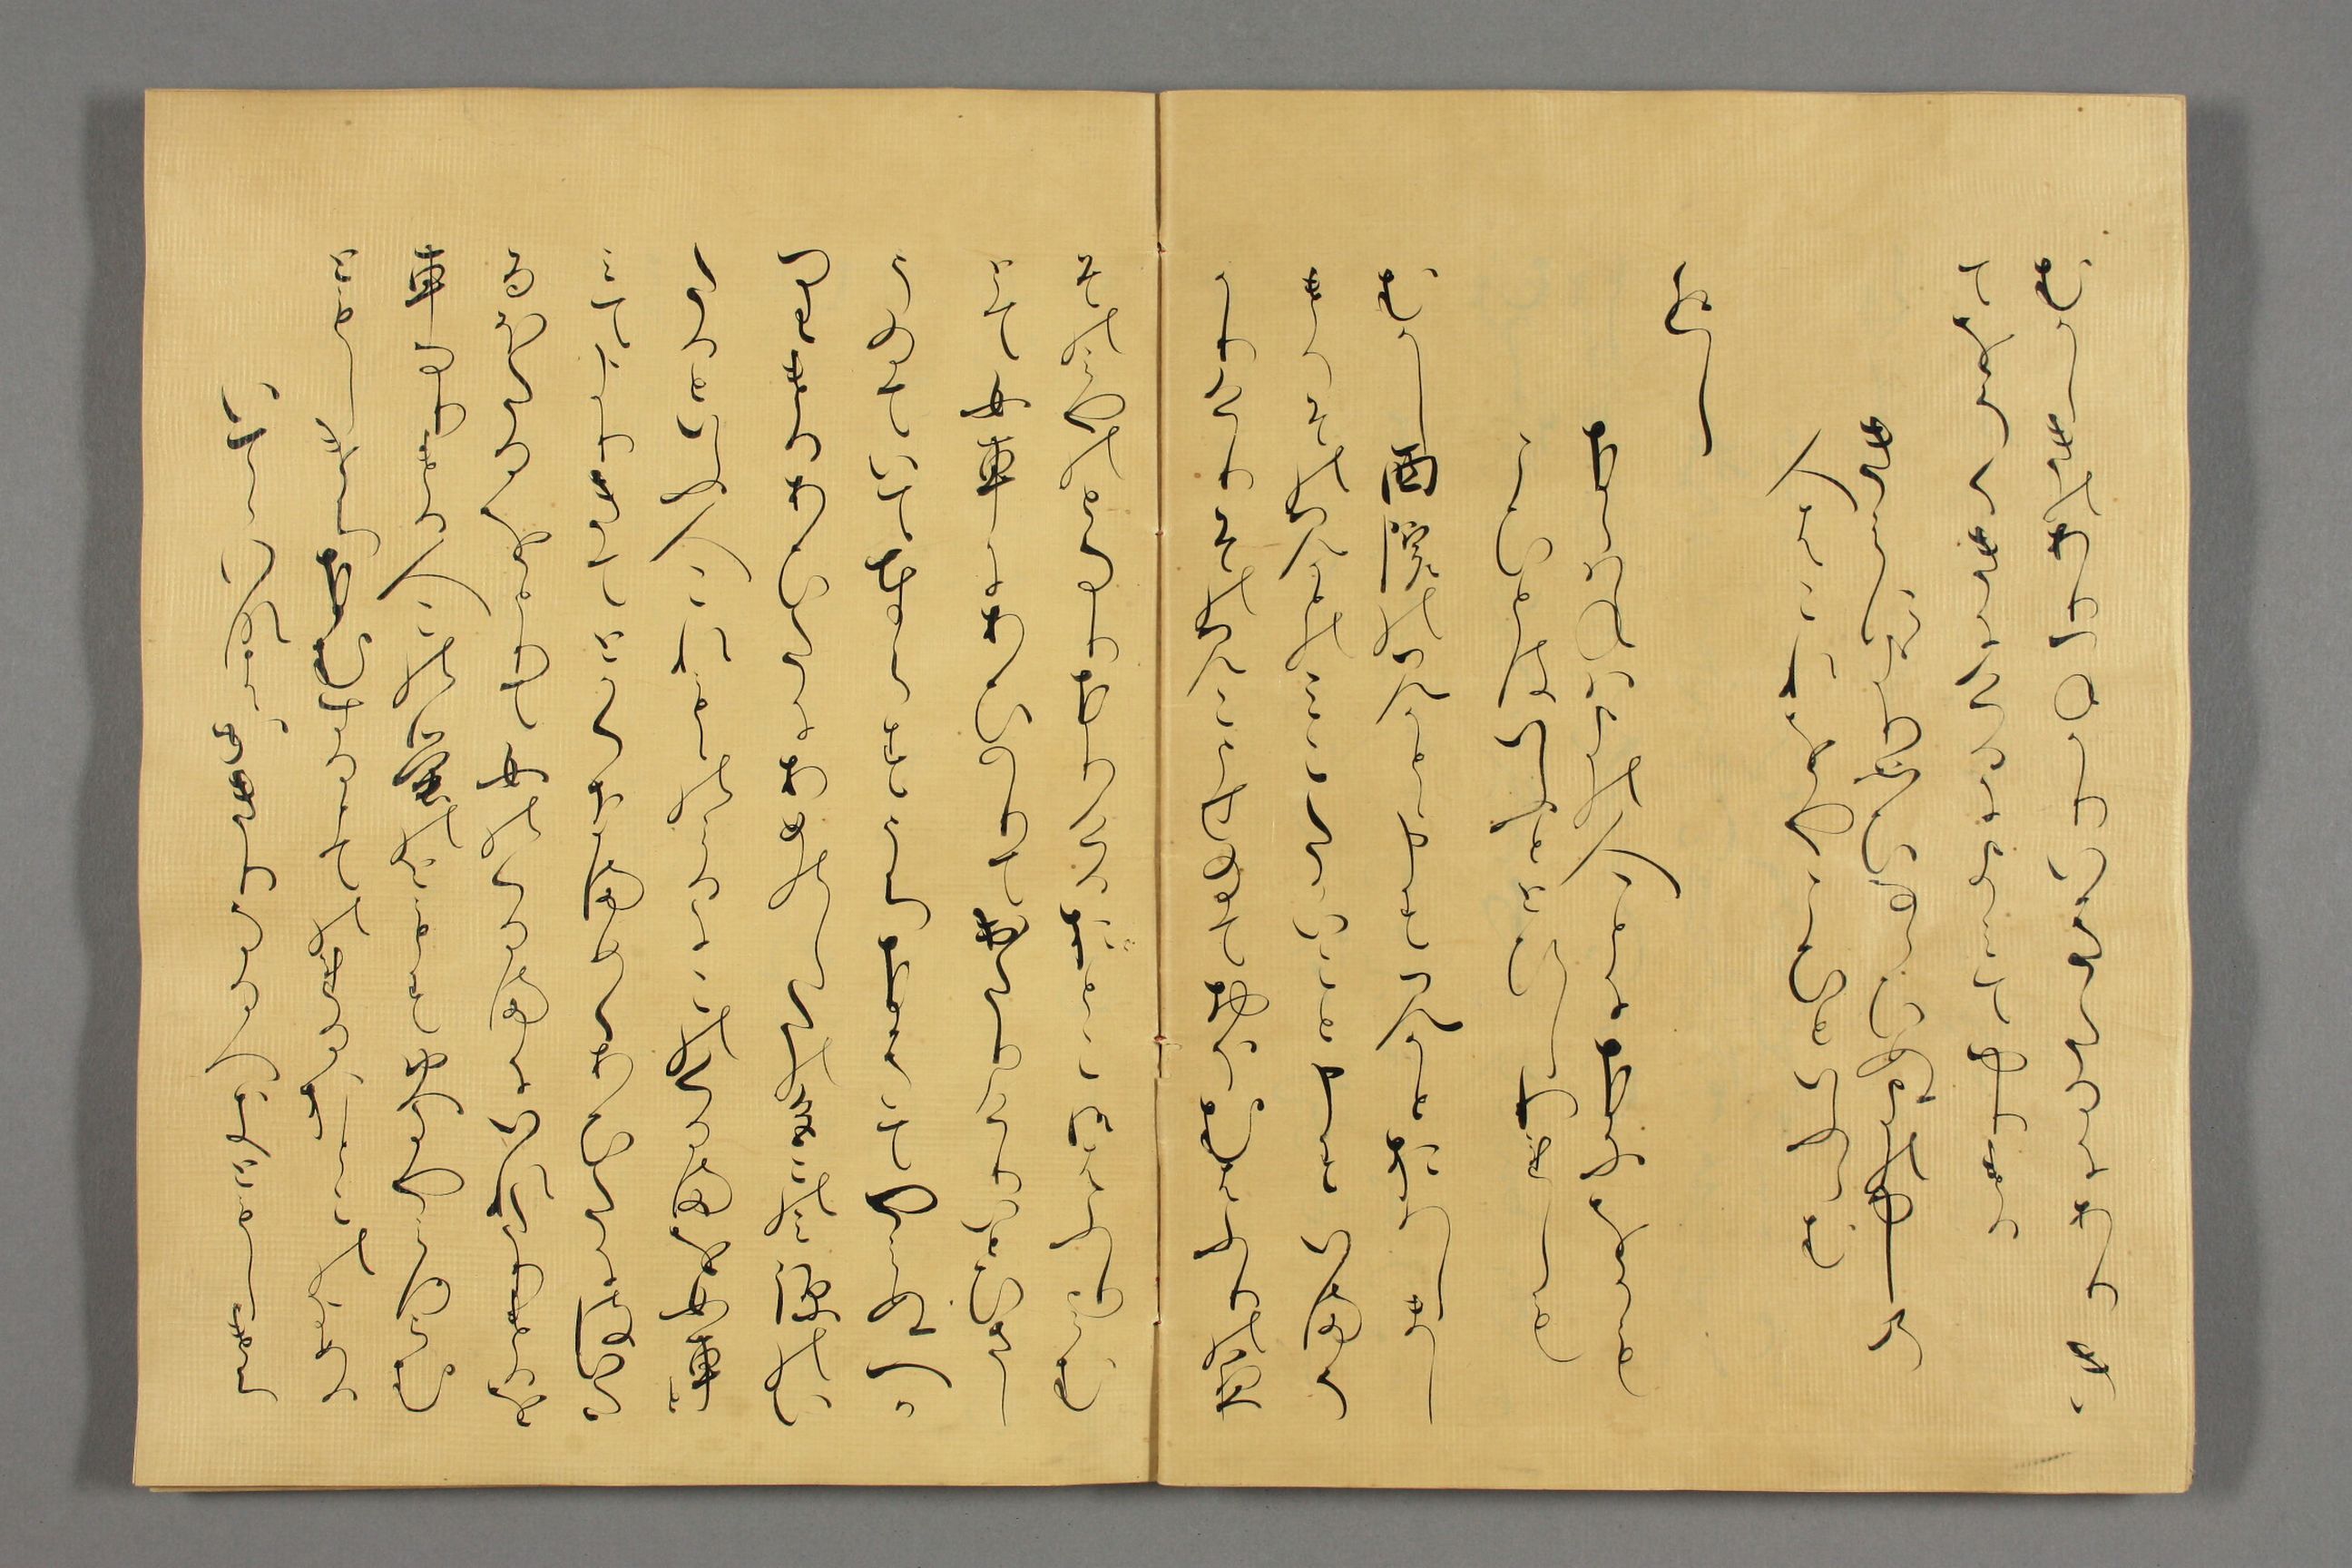 むかしきのありつねかりいきたるにあり
きてをそくきけるによみてやりける
きみによりおもひならひぬよのなかの
人はこれをやこひといふらむ
返し
ならはねは世の人ことになにをかも
こひとはいふとゝひしわれしも
むかし西院のみかとゝ申すみかとおはしまし
けりそのみかとのみこたかいこと申すいま
そかりけりそのみこうせ給ておほむはふりの夜
その宮のとなりなりけるおとこ御はふりみむ
とて女車にあひのりていてたりけりいとひさし
うゐていてたてまつらすうちなきてやみぬへ
かりけるあひたにあめのしたのいろこのみ源の
いたるといふ人これもゝのみるにこの車を女車
とみてよりきてとかくなまめくあひたにかのいたる
ほたるをとりて女のくるまにいれたりけるを
車なりける人このほたるのともす火にやみゆらむ
ともしけちなむするとてのれるおとこのよめる
いてゝいなはかきりなるへみともしけち